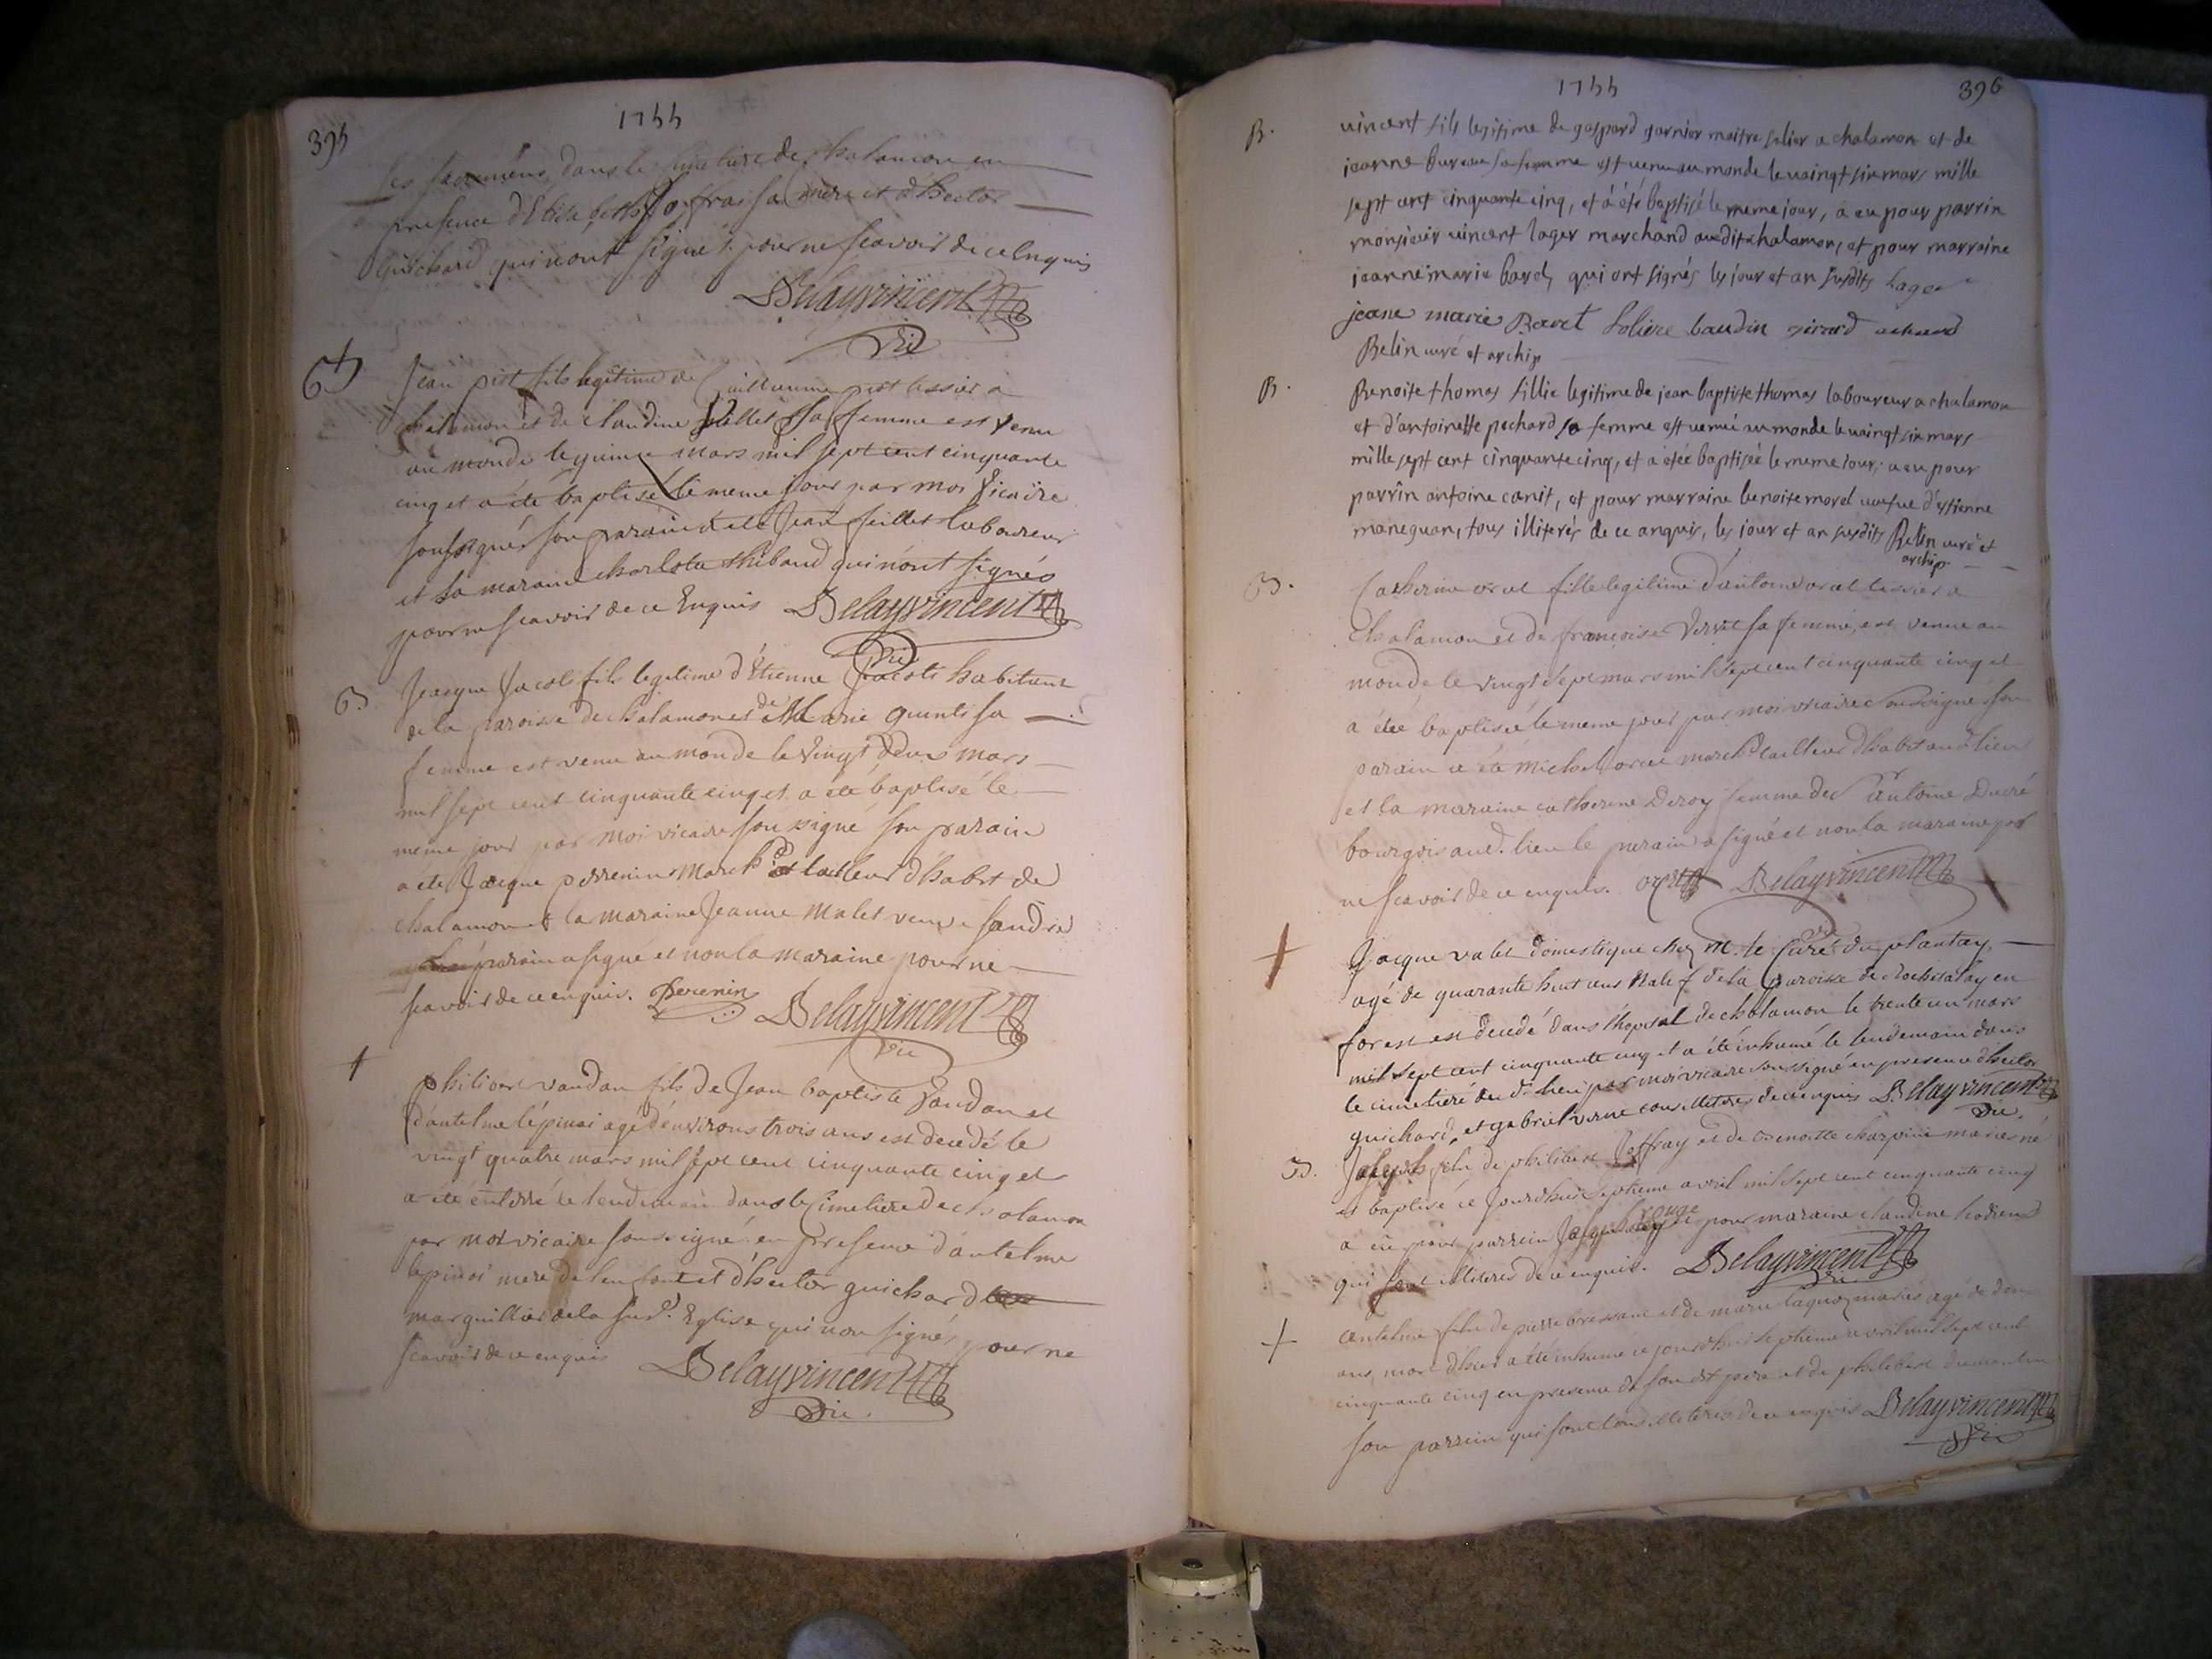 395
1755
les sacremens dans le simetiere de chalamon en
presence d'Elisabeth Joffrai sa mere et d'hector
Guichard qui n'ont signé pour ne scavoir de ce Enquis
Delayvincent
vic
B +
Jean pist fils legitime de Guillaume pist tessier a
chalamon et de claudine feillet sa femme est venu
au monde le quinze mars mil sept cent cinquante
cinq et a été baptisé le meme jour par moi vicaire
soussigné son parain a ete Jean feillet laboureur
et sa maraine charlota thibaud qui n'ont signés
pour ne scavoir de ce Enquis Delayvincent
vic
B
Jacque Jacoti fils legitime d'Etienne Jacoti habitant
de la paroisse de chalamon et de Marie quinti sa
femme est venu au monde le vingt deux mars
mil sept cent cinquante cinq et a été baptisé le
meme jour par moi vicaire soussigné son parain
a ete Jacque perrenin March.d et tailleur d'habit de
chalamon et la maraine Jeanne Malet veuve
parain a signé et non la maraine pour ne
scavoir de ce enquis. Perenin Delayvincent
vic
+
philibert vaudan fils de Jean baptiste vaudan et
d'antelme lépinai agé d'environs trois ans est decedé le
vingt quatre mars mil sept cent cinquante cinq et
a été enterré le lendemain dans le Cimetiere de chalamon
par moi vicaire soussigné en presence d'antelme
lepinai mere de l'enfant et d'hector guichard
marguillier de la sud. Eglise qui n'on signés pour ne
scavoir de ce enquis Delayvincent
vic.
1755
396
B.
vincent fils legitime de gaspard garnier maitre selier a chalamon et de
jeanne bureau sa femme est venu au monde le vaingt six mars mille
sept cent cinquante cinq, et a été baptisé le meme jour, a eu pour parrin
monsieur vincent lager marchand audit chalamon, et pour marraine
jeanne marie baret, qui ont signés les jour et an susdits Lager
jeane marie Baret Soliere baudin
Belin curé et archip
B.
Benoite thomas fillie legitime de jean baptiste thomas laboureur a chalamon
et d'antoinette pochard sa femme est venüe au monde le vaingt six mars
mille sept cent cinquante cinq, et a étée baptisée le meme jour, a eu pour
parrin antoine canit, et pour marraine benoite morel veufve d'estienne
maneguan, tous illiterés de ce anquis, les jour et an susdits Belin curé et
archip
B.
Catherine orcel fille legitime d'antoine orcel tessier a
Chalamon et de francoise Verret sa femme, est venue au
monde le vingt sept mars mil sept cent cinquante cinq et
a été baptisée le meme jour par moi vicaire soussigné son
parain a été michel orcel march.d tailleur d'habit aud. lieu
et la maraine catherine Deroy femme de S.r antoine Ducré
bourgois aud. lieu le parain a signé et non la maraine pour
ne scavoir de ce enquis. orcel Delayvincent
vic
+
Jacque valet domestique chez M. le Curé du plantay,
agé de quarante huit ans natif de la paroisse de Rochetaley en
forest est decedé dans l'hopital de chalamon le trente un mars
mil sept cent cinquante cinq et a été inhumé le lendemain dans
le cimetiere du d. lieu par moi vicaire soussigné en presence d'hector
guichard, et gabriel verne tous illiteres de ce enquis Delayvincent
vic.
B.
Joseph fils de philibert Joffray et de benoitte charpine mariés né
et baptisé ce jourdhui septieme avril mil sept cent cinquante cinq
a eu pour parrein Joseph rouge et pour maraine claudine
qui sont illiteres de ce enquis. Delayvincent
vic
+
antelme fils de pierre bressand et de marie mariés agé de deux
ans, mort d'hier a été inhumé ce jourdhui septieme avril mil sept cent
cinquante cinq en presence de son dit pere et de philibert
son parrein qui sont tous illiteres de ce enquis Delayvincent
vic